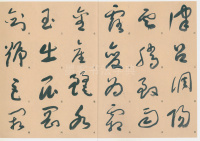 律呂調陽
雲騰致雨
露結為霜
金生麗水
玉出崑岡
劍號巨闕